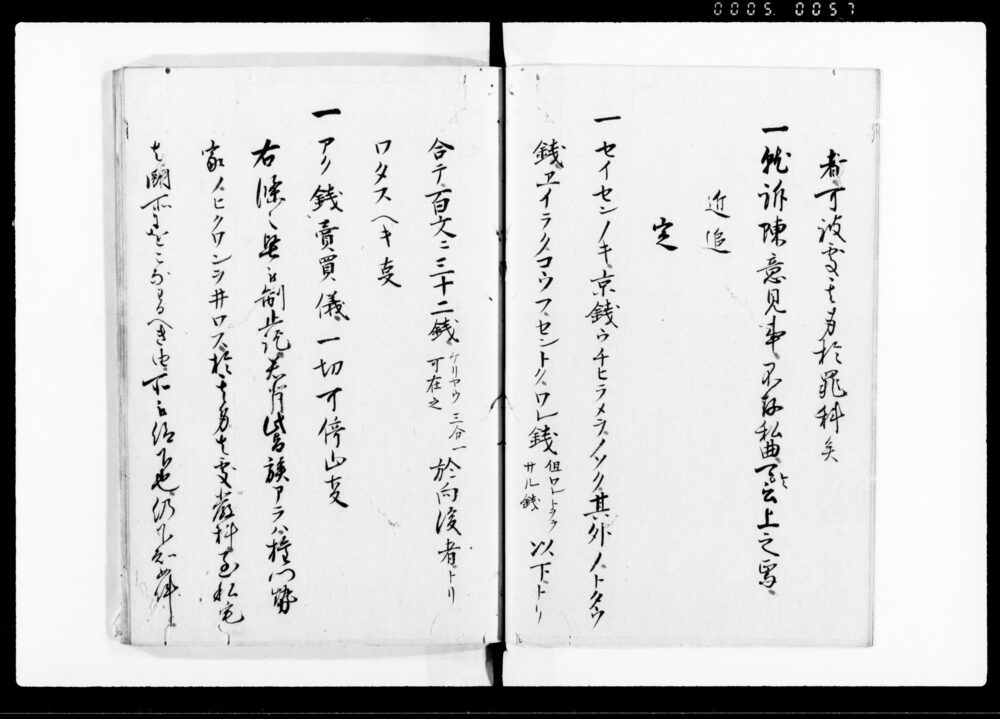 0005 0057
者可被処其身於罪科矣
一就訴陳意見事不存私曲可言上之焉
近追
定
一セイセンノキ京銭ウチヒラメラノソク其外ノトタウ
銭エイラククコウフセントクワレ銭 但ワレトモ サル銭 以下トリ
合テ百文ニ三十二銭 ケリヤウ三分一 可在之 於向後者トリ
ワタスヘキ事
一アク銭売買儀一切可停止事
右條々堅被制止訖若背此旨族アラハ権門勢
家ノヒクワンヲ井ロス於其身者処厳科至私宅
者闕所